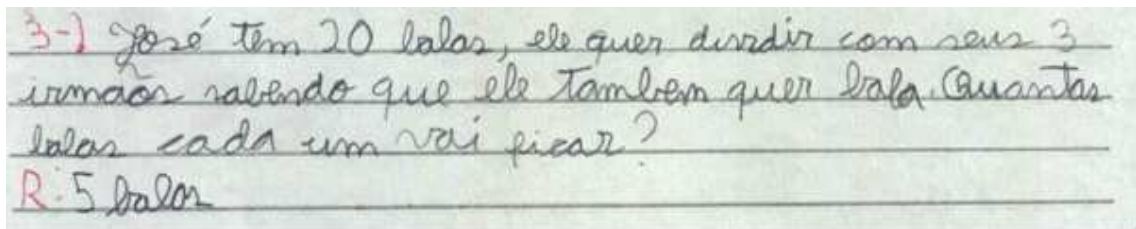 3-) José tem 20 balas, ele quer dividir com seus 3
irmãos sabendo que ele também quer bala. Quantas
balas cada um vai ficar?
R: 5 balas